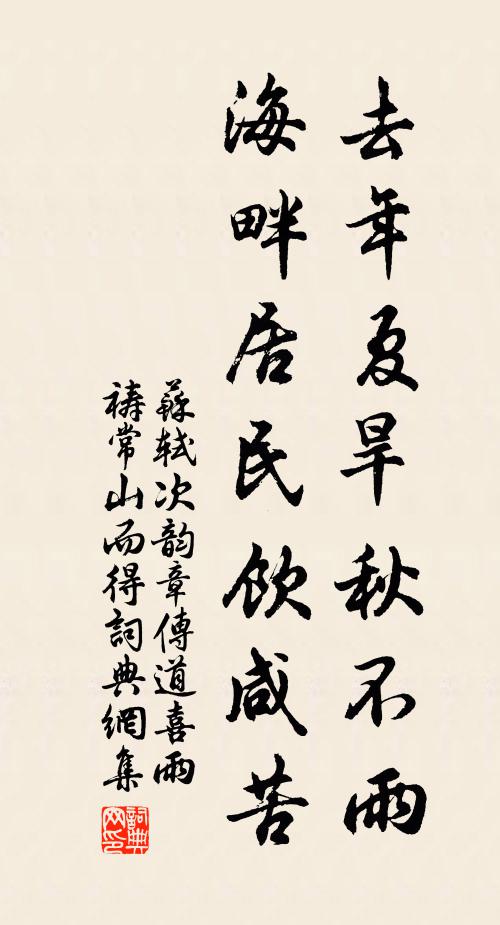 去年夏旱秋不雨
海畔居民飲咸苦
蘇軾次韵章傳道喜雨
禱常山而得詞典網集
詞典
网印